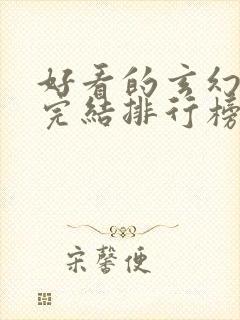 好看的玄幻
完结排行榜
宋馨便